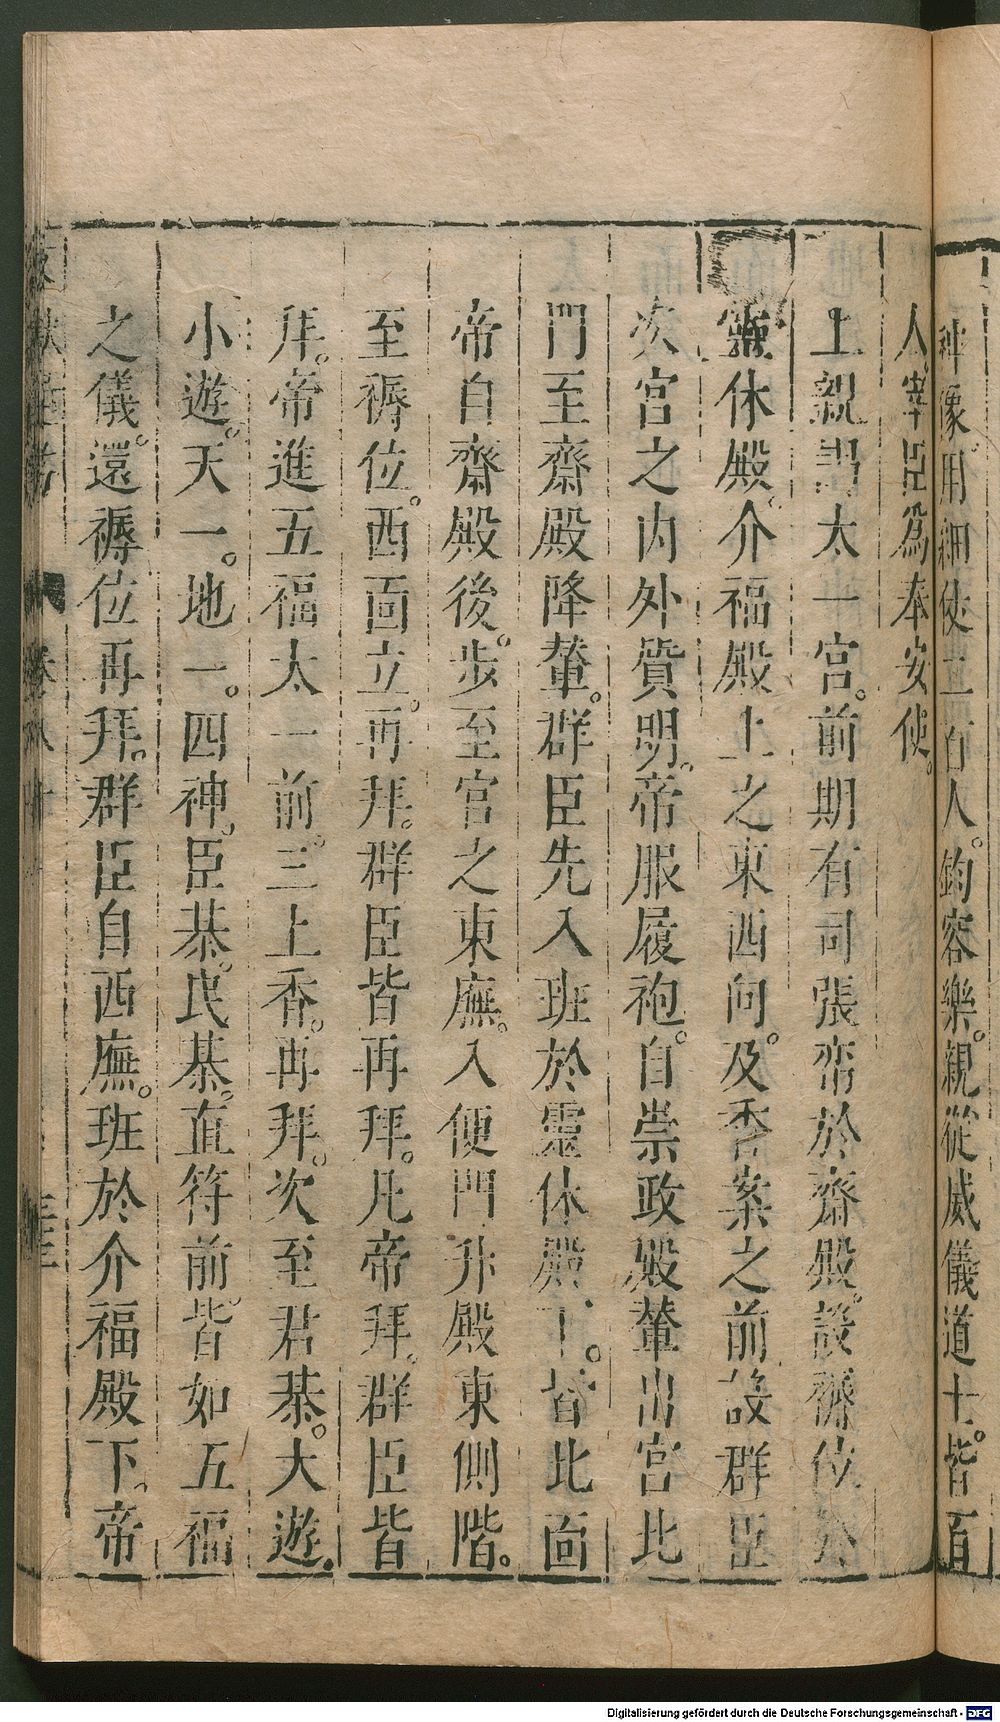 神像用細仗二百人鈞容樂親從威儀道士皆百
人宰臣爲奉安使
上親謁太一宮前期有司張帟於齋殿設褥位於
靈休殿介福殿上之東西向及香案之前設群臣
次宮之内外質明帝服履袍自崇政殿輦出宮北
門至齋殿降輦群臣先入班於靈休殿下皆北面
帝自齋殿後步至宮之東廡入便門升殿東側階
至褥位西面立再拜群臣皆再拜凡帝拜群臣皆
拜帝進五福太一前三上香再拜次至君棊大遊
小遊天一地一四神臣棊民棊直符前皆如五福
之儀還褥位再拜群臣自西廡班於介福殿下帝
Digitalisierung gefördert durch die Deutsche Forschungsgemeinschaft - DFG